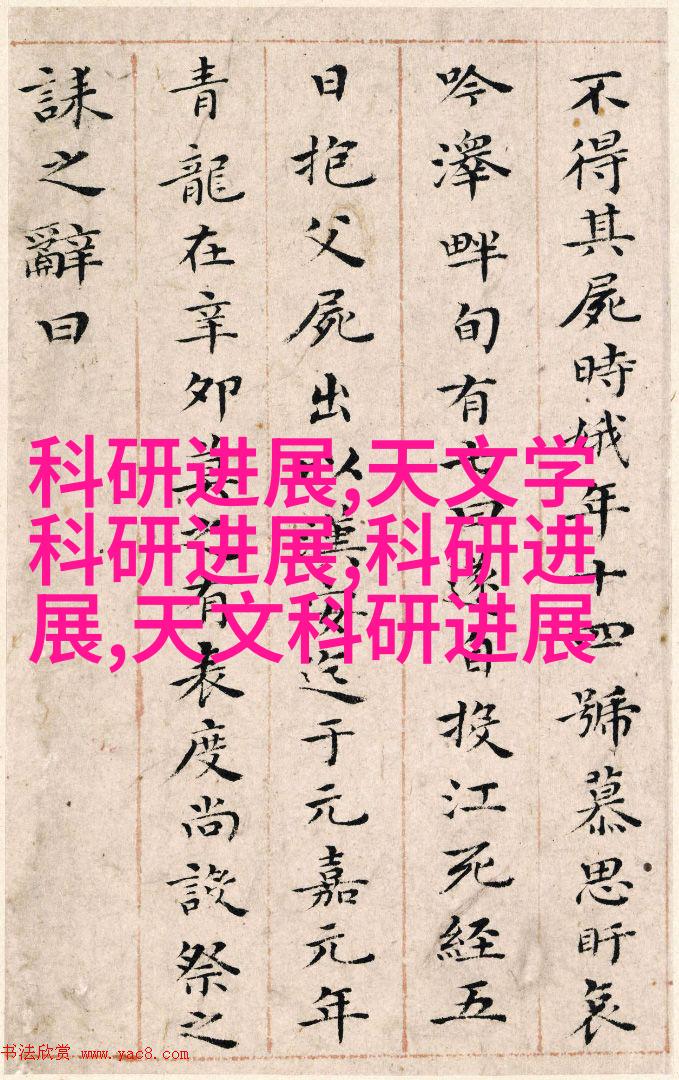 不得其屍時娥年十四號慕思盱哀
吟澤畔旬有七日遂自投江死經五
日抱父屍出以漢安迄于元嘉元年
青龍在辛卯莫之有表度尚設祭之
誄之辭曰
科研进展,天文学
科研进展,科研进
展,天文科研进展
书法欣赏 www.yac8.com